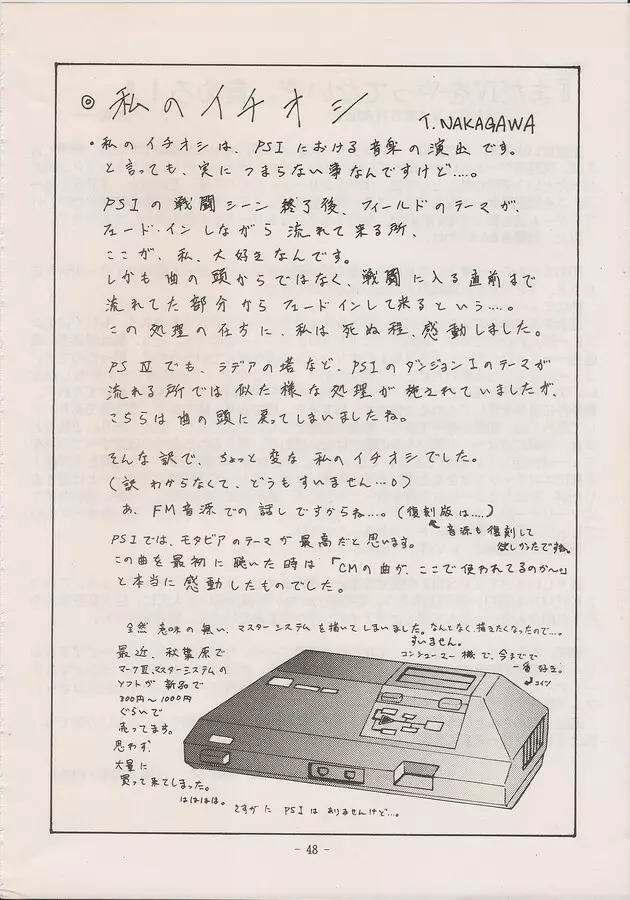 ◎ 私のイチオシ
T. NAKAGAWA
・私のイチオシは、PSIにおける音楽の演出です。
と言っても、実につまらない事なんですけど‥‥。
PSIの戦闘シーン終了後、フィールドのテーマが、
フェード・インしながら流れて来る所、
ここが、私、大好きなんです。
しかも曲の頭からではなく、戦闘に入る直前まで
流れてた部分からフェードインして来るという‥‥。
この処理の在方に、私は死ぬ程、感動しました。
PSⅣでも、ラデアの塔など、PSIのダンジョンIのテーマが
流れる所では似た様な処理が施されていましたが、
こちらは曲の頭に戻ってしまいましたね。
そんな訳で、ちょっと変な私のイチオシでした。
(訳わからなくて、どうもすいません‥‥。)
あ、FM音源での話しですからね‥‥。(復刻版は‥‥)
音源も復刻して
欲しかったですね。
PSIでは、モタビアのテーマが最高だと思います。
この曲を最初に聴いた時は「CMの曲が、ここで使われてるのか〜。」
と本当に感動したものでした。
全然意味の無い、マスターシステムを描いてしまいました。なんとなく、描きたくなったので‥‥。
すいません。
コンシューマー機で、今までで
一番好き。
コイツ
最近、秋葉原で
マークⅢ、マスターシステムの
ソフトが新品で
300円〜1000円
ぐらいで
売ってます。
思わず、
大量に
買って来てしまった。
はははは。
さすがにPSIはありませんけど‥‥。
- 48 -